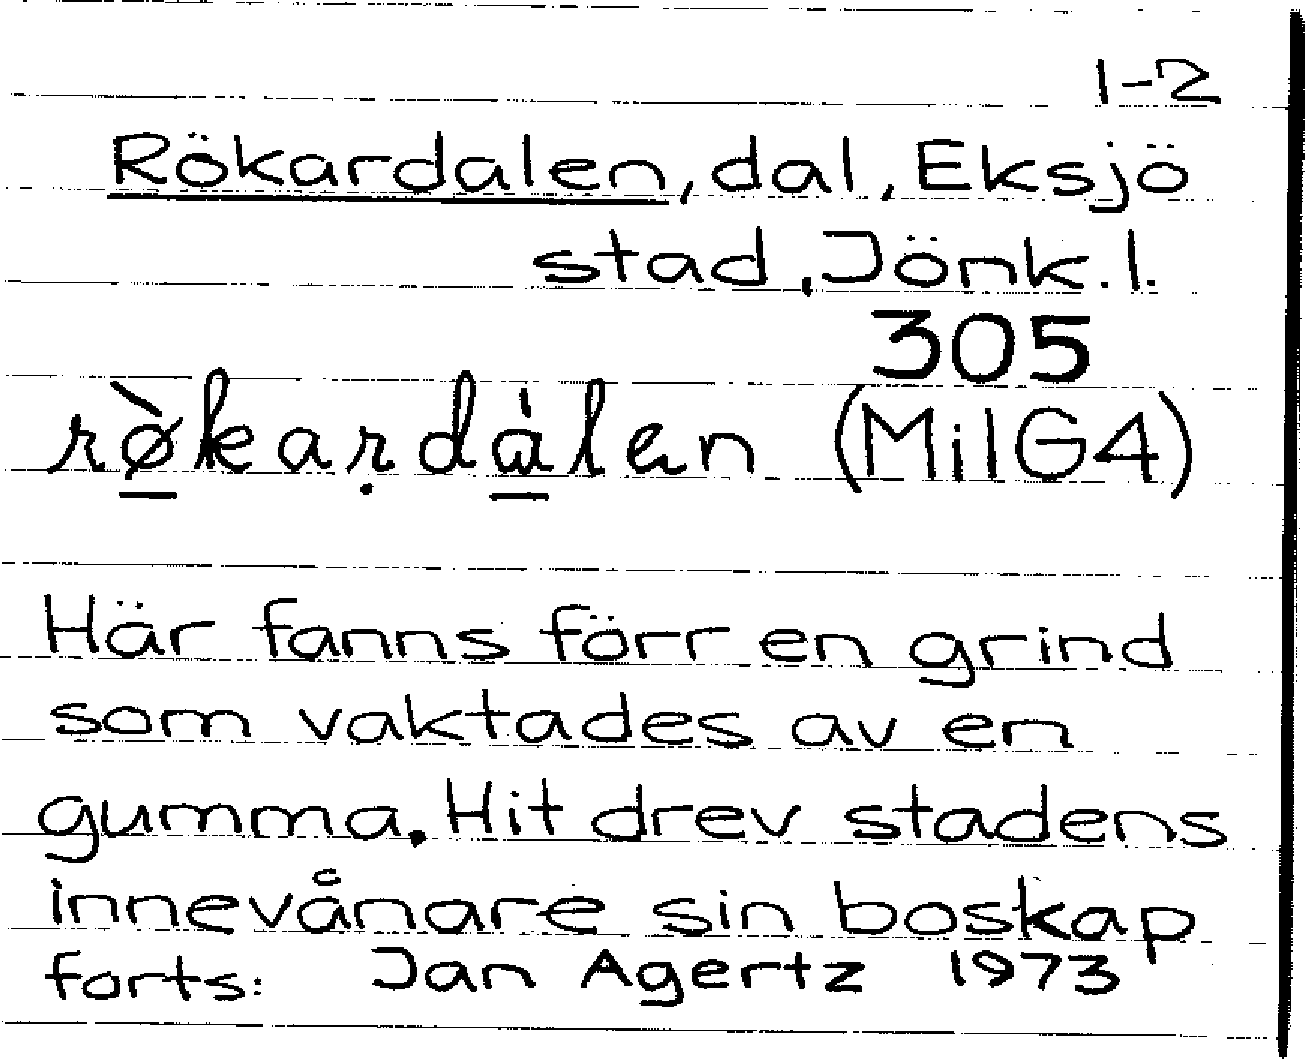 1-2
Rökardalen, dal, Eksjö
stad, Jönk. l.
305
rø̀kaṛdàlen (MilG4)
Här fanns förr en grind
som vaktades av en
gumma. Hit drev stadens
innevånare sin boskap
forts: Jan Agertz 1973